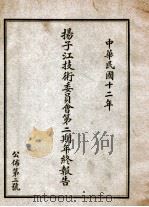 中華民國十二年
揚子江技術委員會第二期年終報告
公佈第二號